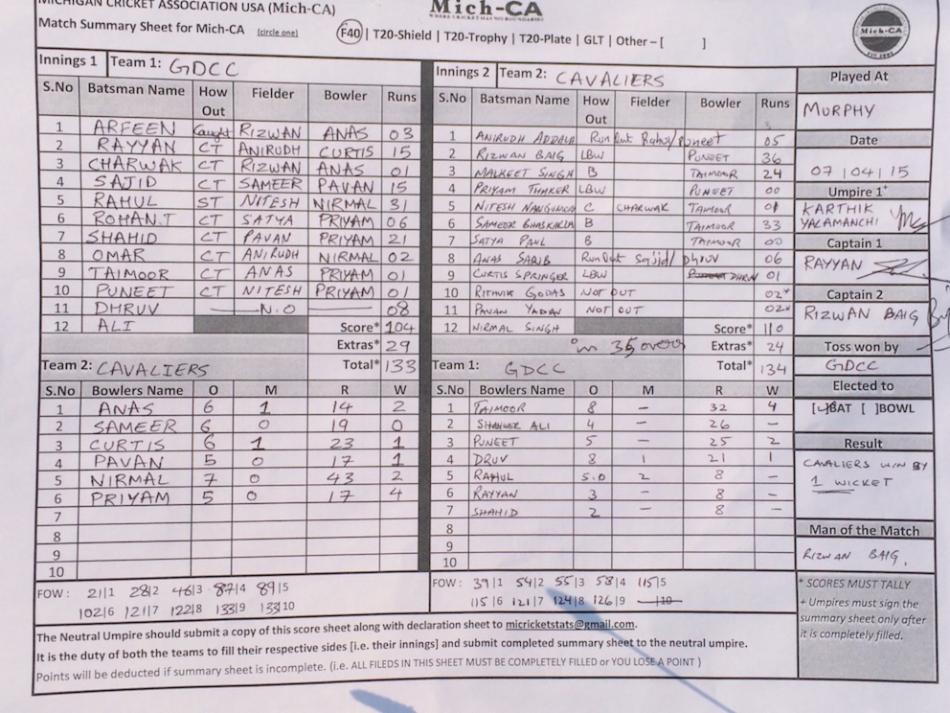 MICHIGAN CRICKET ASSOCIATION USA (Mich-CA)
Mich-CA
Match Summary Sheet for Mich-CA (circle one) F40 | T20-Shield | T20-Trophy | T20-Plate | GLT | Other – [ ]
Mich-CA
Innings 1 Team 1: GDCC
S.No Batsman Name How Out Fielder Bowler Runs
1 ARFEEN Caught RIZWAN ANAS 03
2 RAYYAN CT ANIRUDH CURTIS 15
3 CHARWAK CT RIZWAN ANAS 01
4 SAJID CT SAMEER PAVAN 15
5 RAHUL ST NITESH NIRMAL 31
6 ROHAN.T CT SATYA PRIYAM 06
7 SHAHID CT PAVAN PRIYAM 21
8 OMAR CT ANIRUDH NIRMAL 02
9 TAIMOOR CT ANAS PRIYAM 01
10 PUNEET CT NITESH PRIYAM 01
11 DHRUV — N.O — 08
12 ALI Score* 104
Extras* 29
Total* 133
Team 2: CAVALIERS
S.No Bowlers Name O M R W
1 ANAS 6 1 14 2
2 SAMEER 6 0 19 0
3 CURTIS 6 1 23 1
4 PAVAN 5 0 17 1
5 NIRMAL 7 0 43 2
6 PRIYAM 5 0 17 4
7
8
9
10
FOW: 21/1 28/2 46/3 87/4 89/5
102/6 121/7 122/8 133/9 133/10
Innings 2 Team 2: CAVALIERS
S.No Batsman Name How Out Fielder Bowler Runs
1 ANIRUDH Run Out Puneet 05
2 RIZWAN BAIG LBW PUNEET 36
3 MALKEET SINGH B TAIMOOR 24
4 PRIYAM THAKER LBW PUNEET 00
5 NITESH C CHARWAK TAIMOOR 01
6 SAMEER B TAIMOOR 33
7 SATYA PAUL B TAIMOOR 00
8 ANAS Run Out Sajid/ Dhruv 06
9 CURTIS SPRINGER LBW DHRUV 01
10 RITHVIK NOT OUT 02*
11 PAVAN YADAV NOT OUT 02*
12 NIRMAL SINGH Score* 110
in 35 overs Extras* 24
Total* 134
Team 1: GDCC
S.No Bowlers Name O M R W
1 TAIMOOR 8 – 32 4
2 ALI 4 – 26 –
3 PUNEET 5 – 25 2
4 DRUV 8 1 21 1
5 RAHUL 5.0 2 8 –
6 RAYYAN 3 – 8 –
7 SHAHID 2 – 8 –
8
9
10
FOW: 39/1 54/2 55/3 58/4 115/5
115/6 121/7 124/8 126/9 /10
Played At
MURPHY
Date
07/04/15
Umpire 1+
KARTHIK YALAMANCHI
Captain 1
RAYYAN
Captain 2
RIZWAN BAIG
Toss won by
GDCC
Elected to
[✓]BAT [ ]BOWL
Result
CAVALIERS WIN BY
1 WICKET
Man of the Match
RIZWAN BAIG.
* SCORES MUST TALLY
+ Umpires must sign the
summary sheet only after
it is completely filled.
The Neutral Umpire should submit a copy of this score sheet along with declaration sheet to micricketstats@gmail.com.
It is the duty of both the teams to fill their respective sides [i.e. their innings] and submit completed summary sheet to the neutral umpire.
Points will be deducted if summary sheet is incomplete. (i.e. ALL FILEDS IN THIS SHEET MUST BE COMPLETELY FILLED or YOU LOSE A POINT )